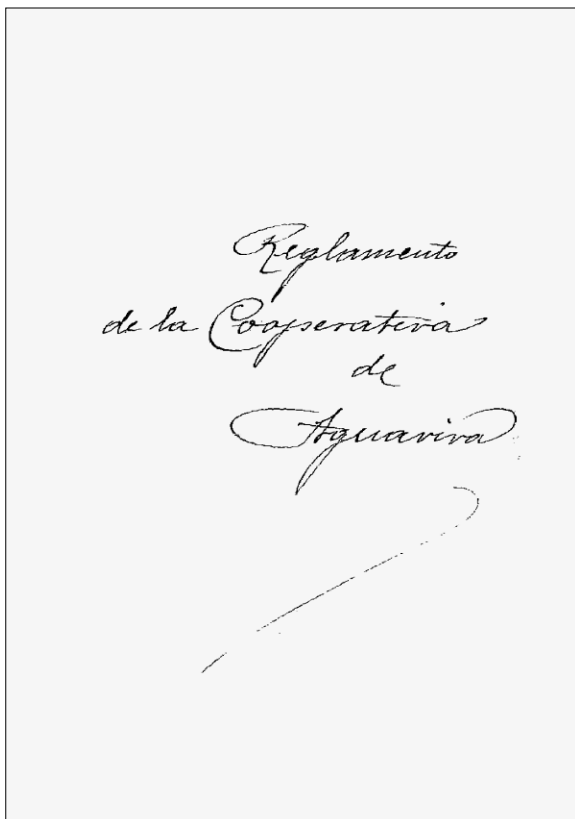 Reglamento
de la Cooperativa
de
Aguaviva